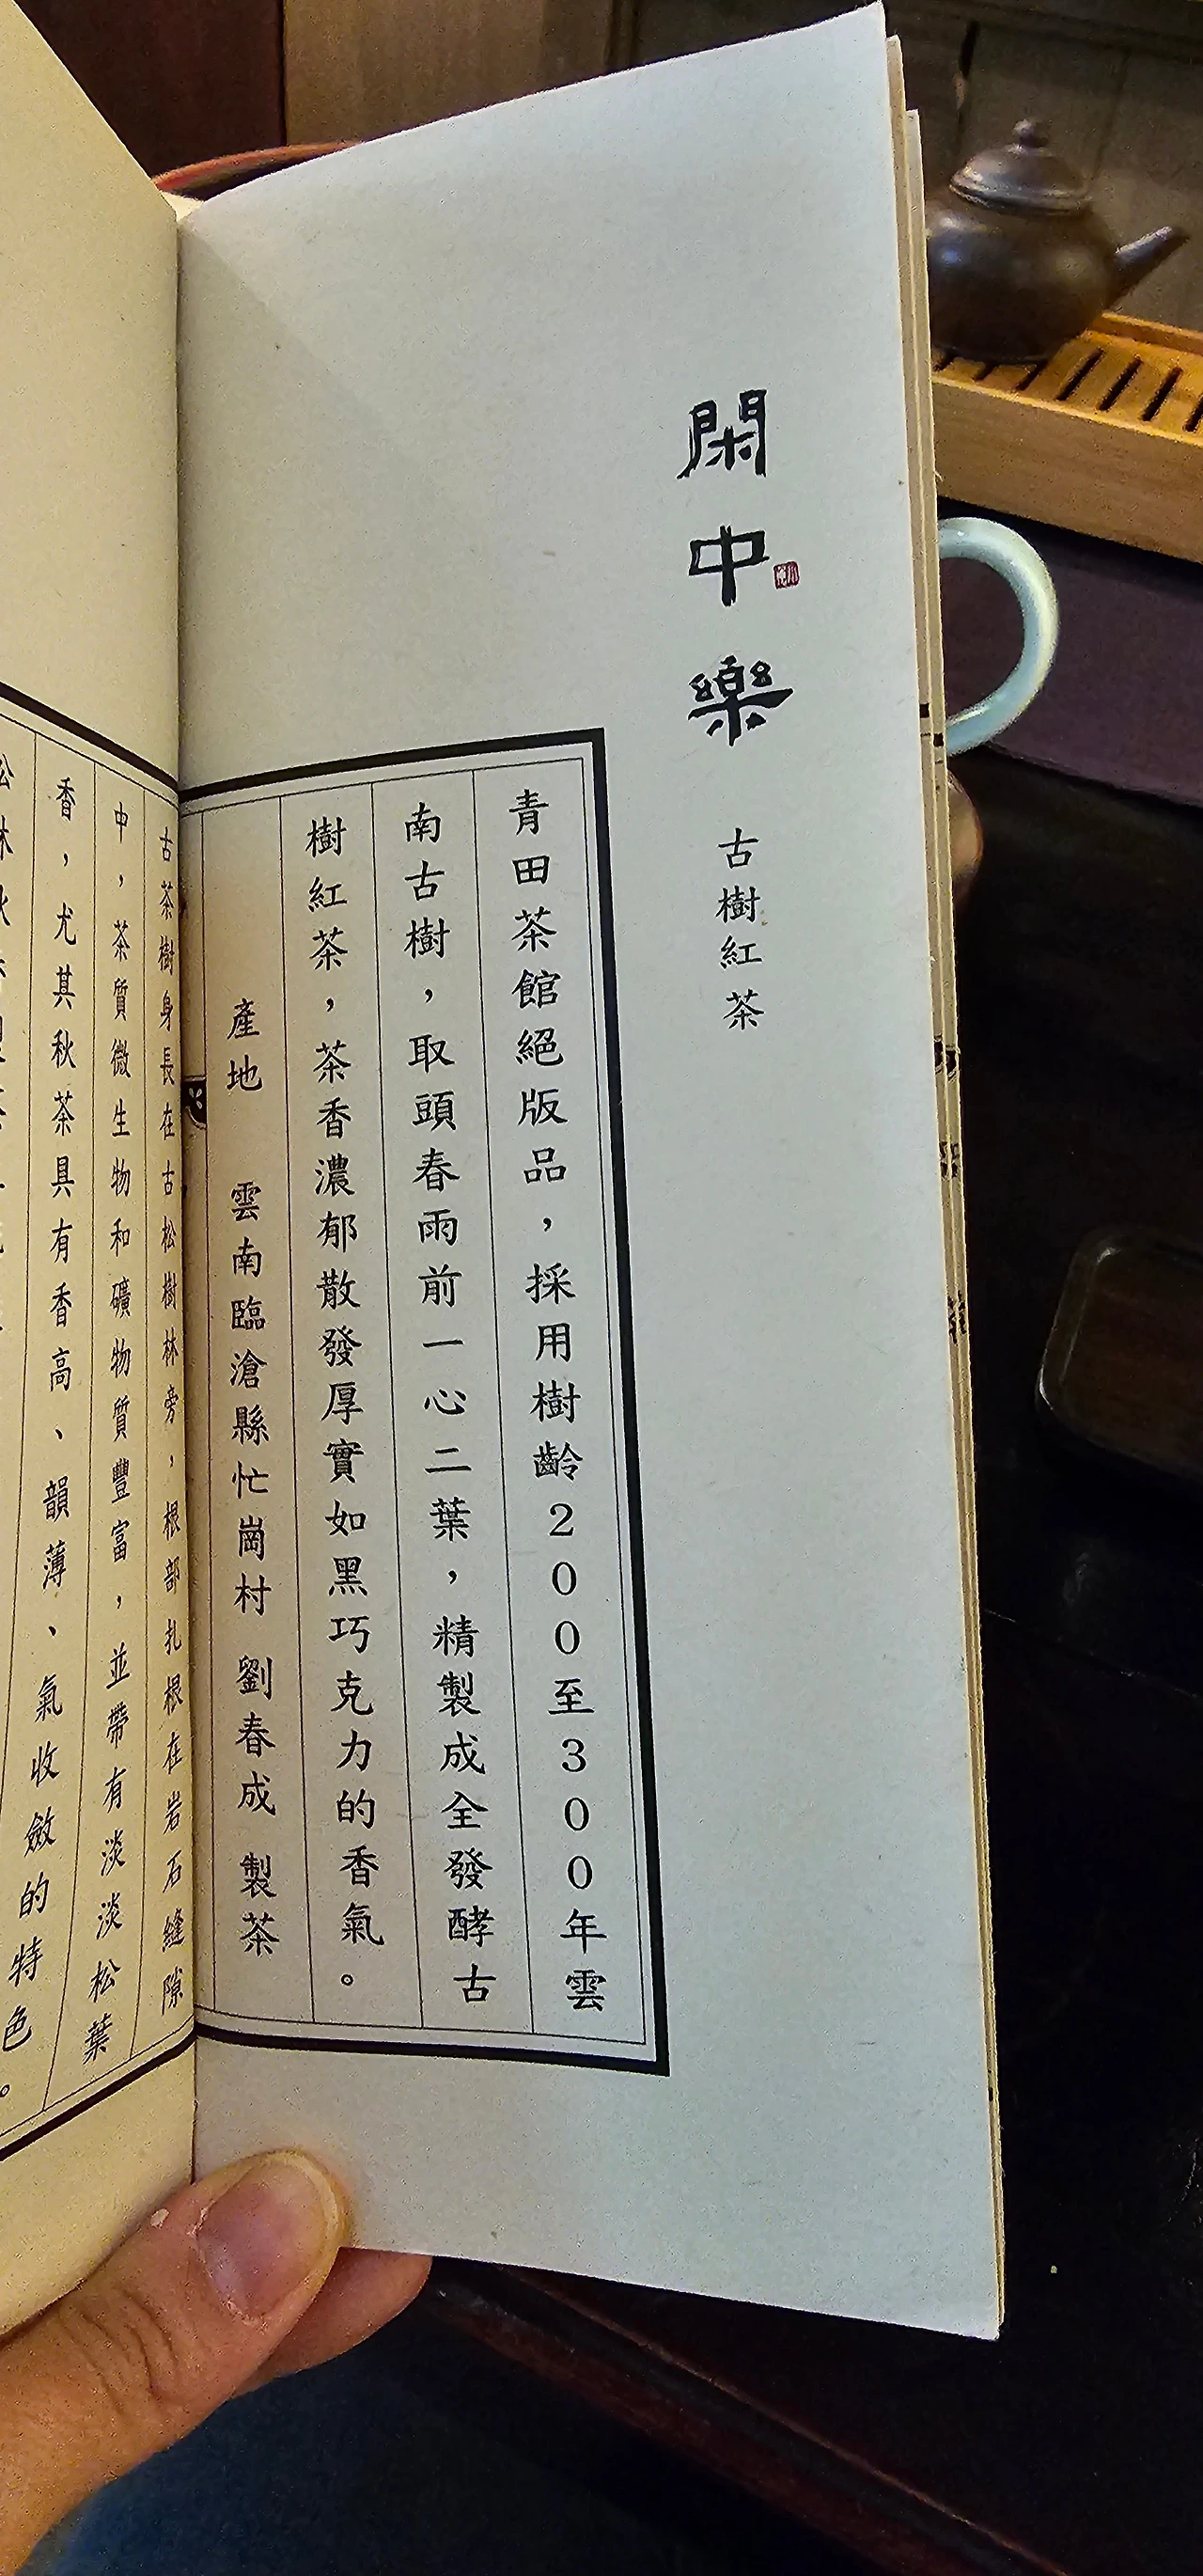 閑中樂
古樹紅茶
青田茶館絕版品，採用樹齡200至300年雲
南古樹，取頭春雨前一心二葉，精製成全發酵古
樹紅茶，茶香濃郁散發厚實如黑巧克力的香氣。
產地 雲南臨滄縣忙崗村 劉春成 製茶
古茶樹身長在古松樹林旁，根部扎根在岩石縫隙
中，茶質微生物和礦物質豐富，並帶有淡淡松葉
香，尤其秋茶具有香高、韻薄、氣收斂的特色。